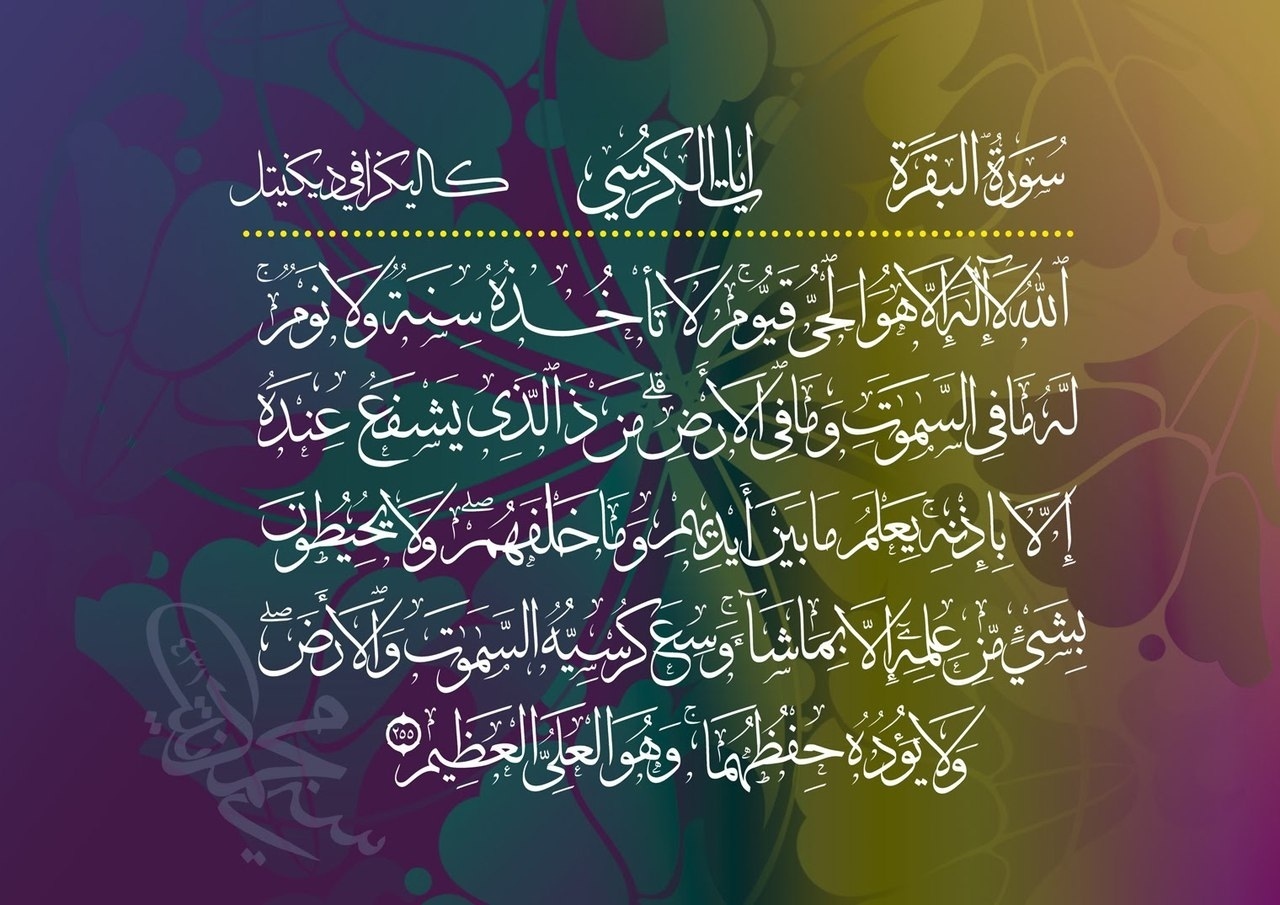 سُورَةُ البَقَرَة ايات الكُرسِي كاليكرافي ديكيتل
ٱللَّهُ لَآ إِلَٰهَ إِلَّا هُوَ ٱلْحَيُّ قَيُّومُ ۚ لَا تَأْخُذُهُ سِنَةٌ وَلَا نَوْمٌ ۚ
لَّهُ مَا فِي السَّمَوَتِ وَمَا فِي ٱلْأَرْضِ ۗ مَن ذَا ٱلَّذِي يَشْفَعُ عِندَهُ
إِلَّا بِإِذْنِهِ ۚ يَعْلَمُ مَا بَيْنَ أَيْدِيهِمْ وَمَا خَلْفَهُمْ ۖ وَلَا يُحِيطُونَ
بِشَيْءٍ مِّنْ عِلْمِهِ إِلَّا بِمَا شَآءَ ۚ وَسِعَ كُرْسِيُّهُ السَّمَوَتِ وَٱلْأَرْضَ ۖ
وَلَا يَؤُدُهُ حِفْظُهُمَا ۚ وَهُوَ الْعَلِيُّ الْعَظِيمُ ٢٥٥